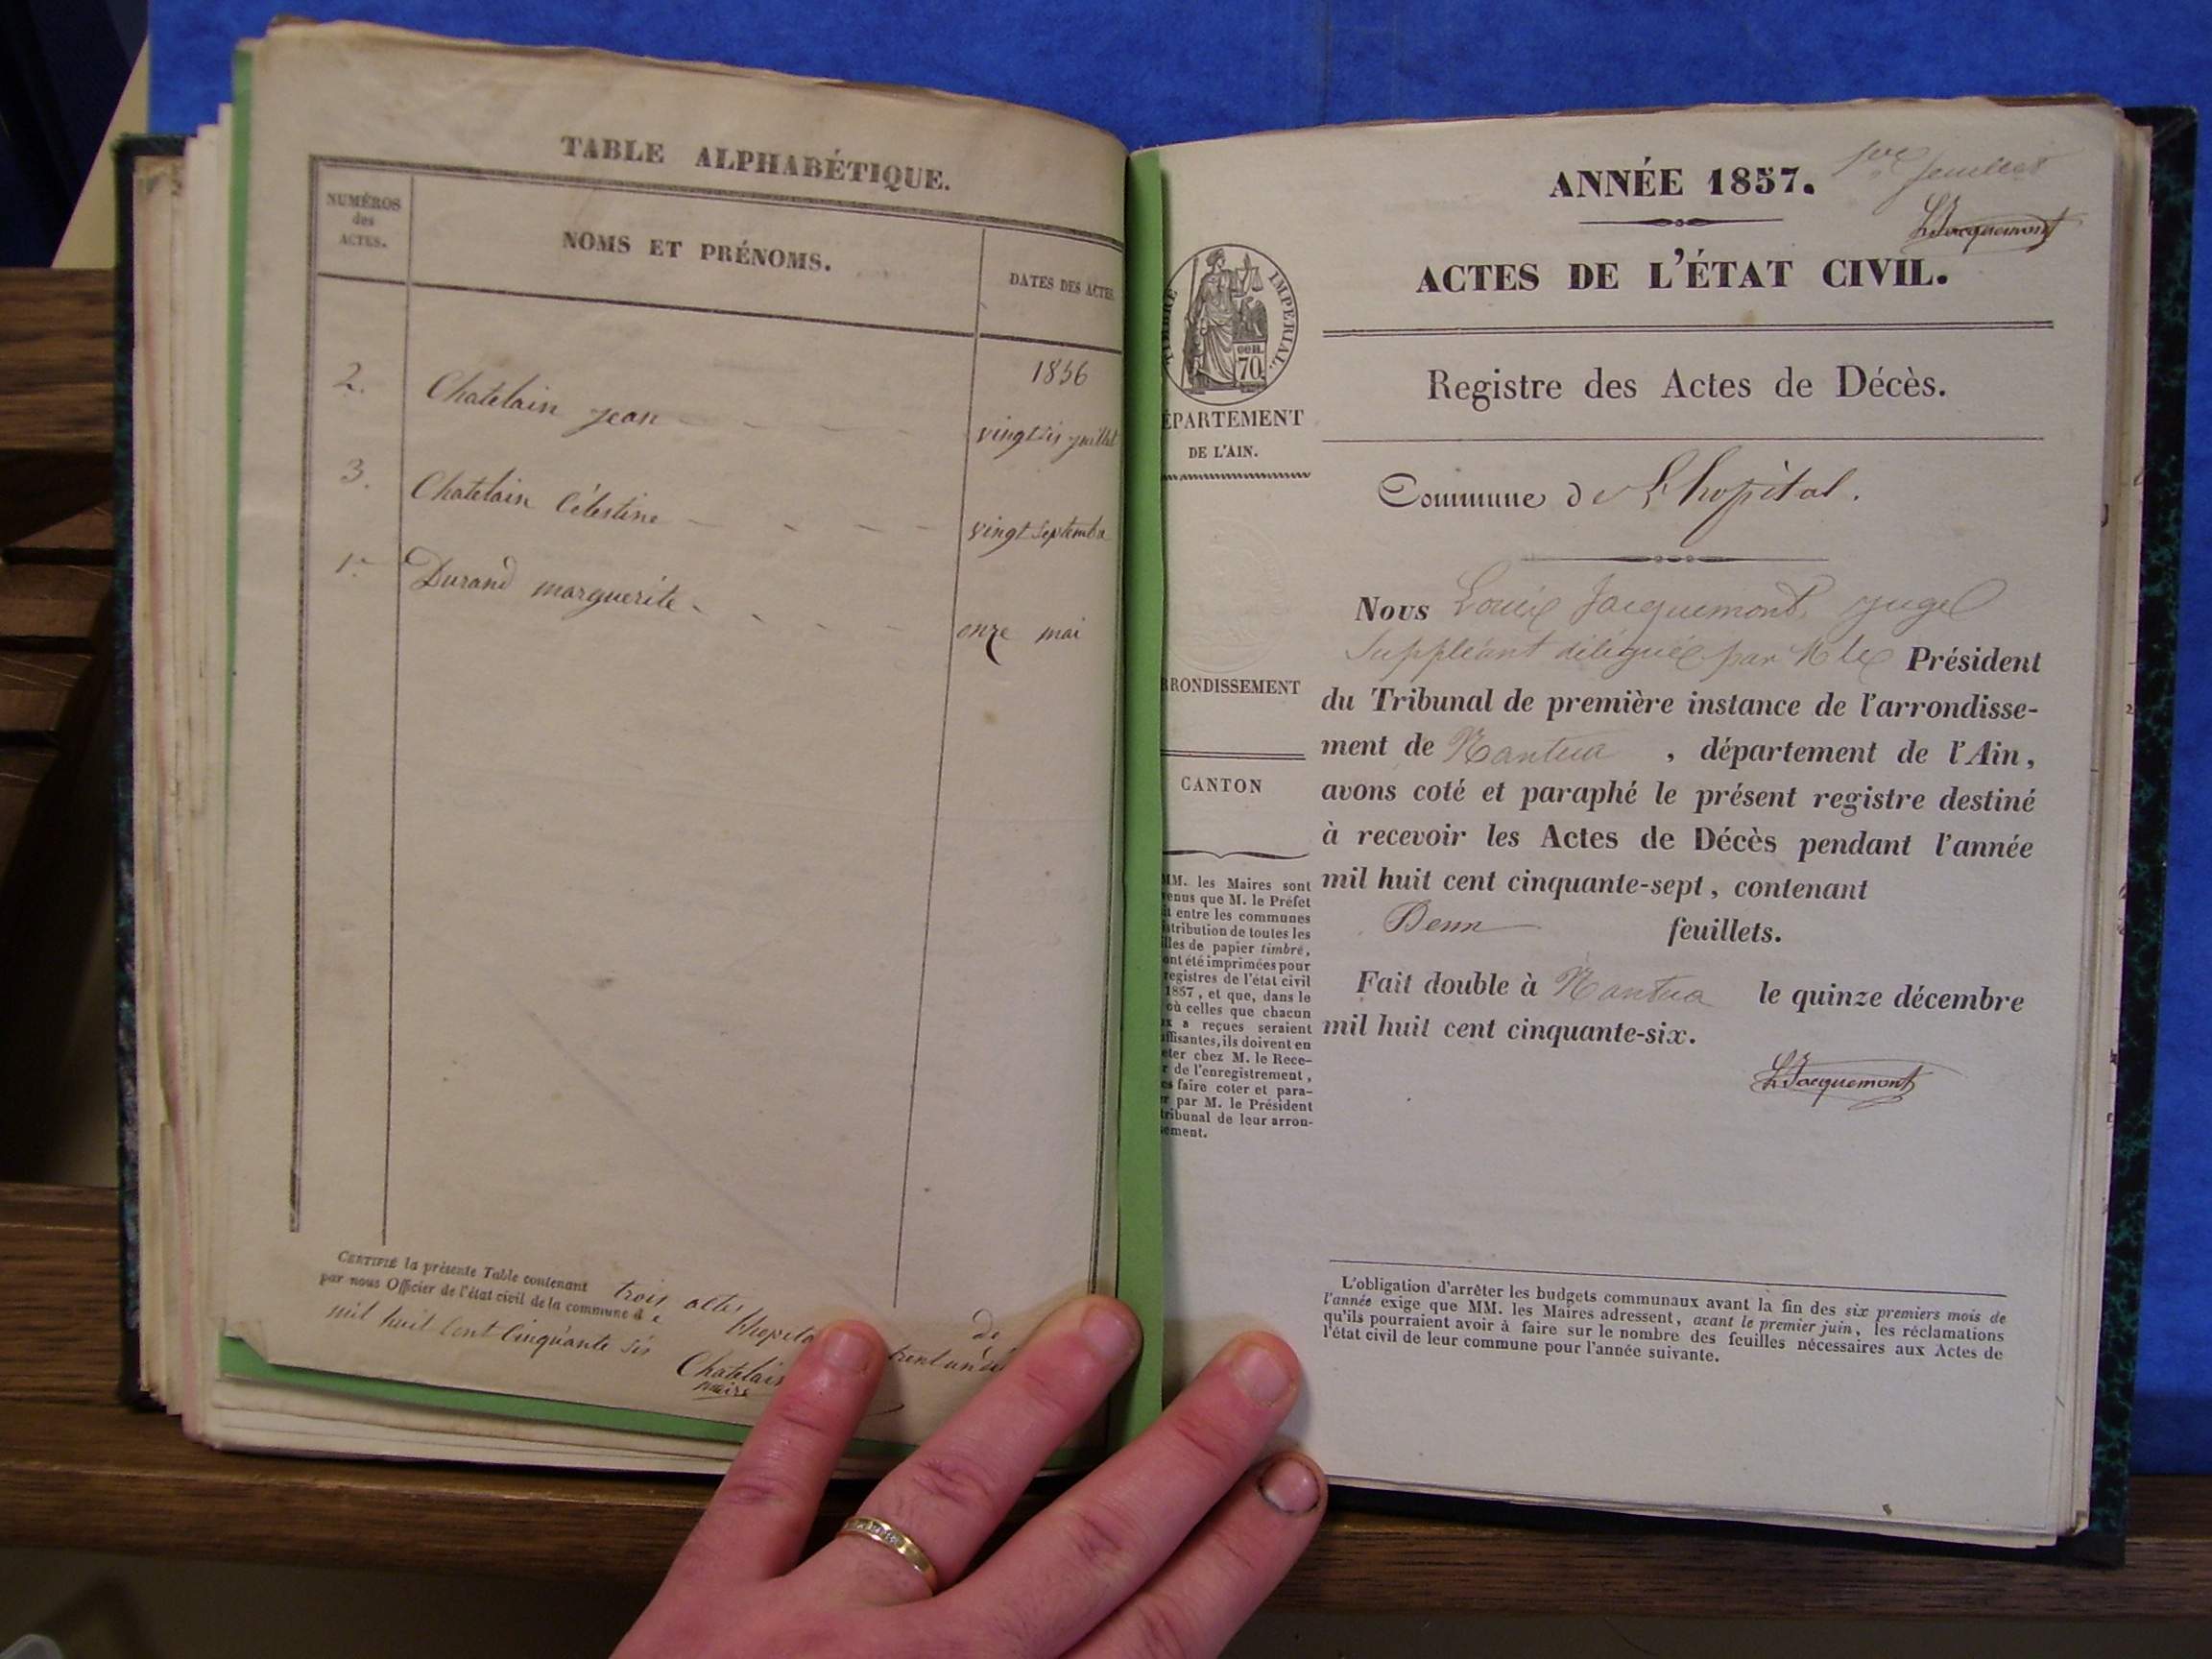 TABLE ALPHABÉTIQUE.
NUMÉROS
des
ACTES.
NOMS ET PRÉNOMS.
DATES DES ACTES.
1856
2. Chatelain jean vingt six juillet
3. Chatelain Célestine vingt septembre
1er Durand marguerite onze mai
CERTIFIÉ la présente Table contenant trois actes
par nous Officier de l'état civil de la commune de lhopita de
mil huit cent cinquante six trent un dé
Chatelain
maire
1er feuillet
LJacquemont
ANNÉE 1857.
ACTES DE L'ÉTAT CIVIL.
TIMBRE IMPÉRIAL.
70
Registre des Actes de Décès.
ÉPARTEMENT
DE L'AIN.
Commune de Lhopital.
Nous Louis Jacquemont, juge
Suppléant délégué par M le Président
du Tribunal de première instance de l'arrondisse-
ment de Nantua, département de l'Ain,
avons coté et paraphé le présent registre destiné
à recevoir les Actes de Décès pendant l'année
mil huit cent cinquante-sept, contenant
Deux feuillets.
Fait double à Nantua le quinze décembre
mil huit cent cinquante-six.
LJacquemont
RRONDISSEMENT
CANTON
MM. les Maires sont
venus que M. le Préfet
it entre les communes
stribution de toutes les
illes de papier timbré,
ont été imprimées pour
registres de l'état civil
1857, et que, dans le
où celles que chacun
ux a reçues seraient
uffisantes, ils doivent en
eter chez M. le Rece-
r de l'enregistrement,
es faire coter et para-
er par M. le Président
tribunal de leur arron-
sement.
L'obligation d'arrêter les budgets communaux avant la fin des six premiers mois de
l'année exige que MM. les Maires adressent, avant le premier juin, les réclamations
qu'ils pourraient avoir à faire sur le nombre des feuilles nécessaires aux Actes de
l'état civil de leur commune pour l'année suivante.